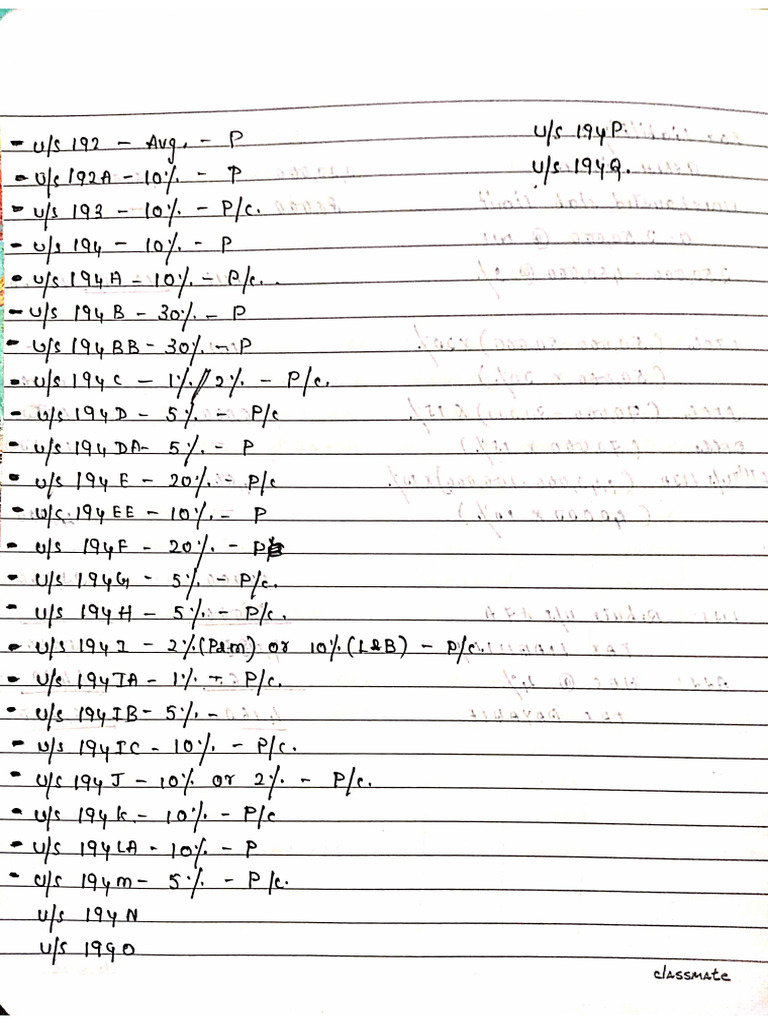 - U/S 192 - Avg. - P
- U/S 192A - 10% - P
- U/S 193 - 10% - P/C.
- U/S 194 - 10% - P
- U/S 194A - 10% - P/C.
- U/S 194B - 30% - P
- U/S 194BB - 30% - P
- U/S 194C - 1% // 2% - P/C.
- U/S 194D - 5% - P/C
- U/S 194DA - 5% - P
- U/S 194E - 20% - P/C
- U/S 194EE - 10% - P
- U/S 194F - 20% - P
- U/S 194G - 5% - P/C.
- U/S 194H - 5% - P/C.
- U/S 194I - 2% (P&M) or 10% (L&B) - P/C.
- U/S 194IA - 1% - P/C.
- U/S 194IB - 5% -
- U/S 194IC - 10% - P/C.
- U/S 194J - 10% or 2% - P/C.
- U/S 194K - 10% - P/C
- U/S 194LA - 10% - P
- U/S 194M - 5% - P/C.
U/S 194N
U/S 1940
U/S 194P.
U/S 194Q.
classmate